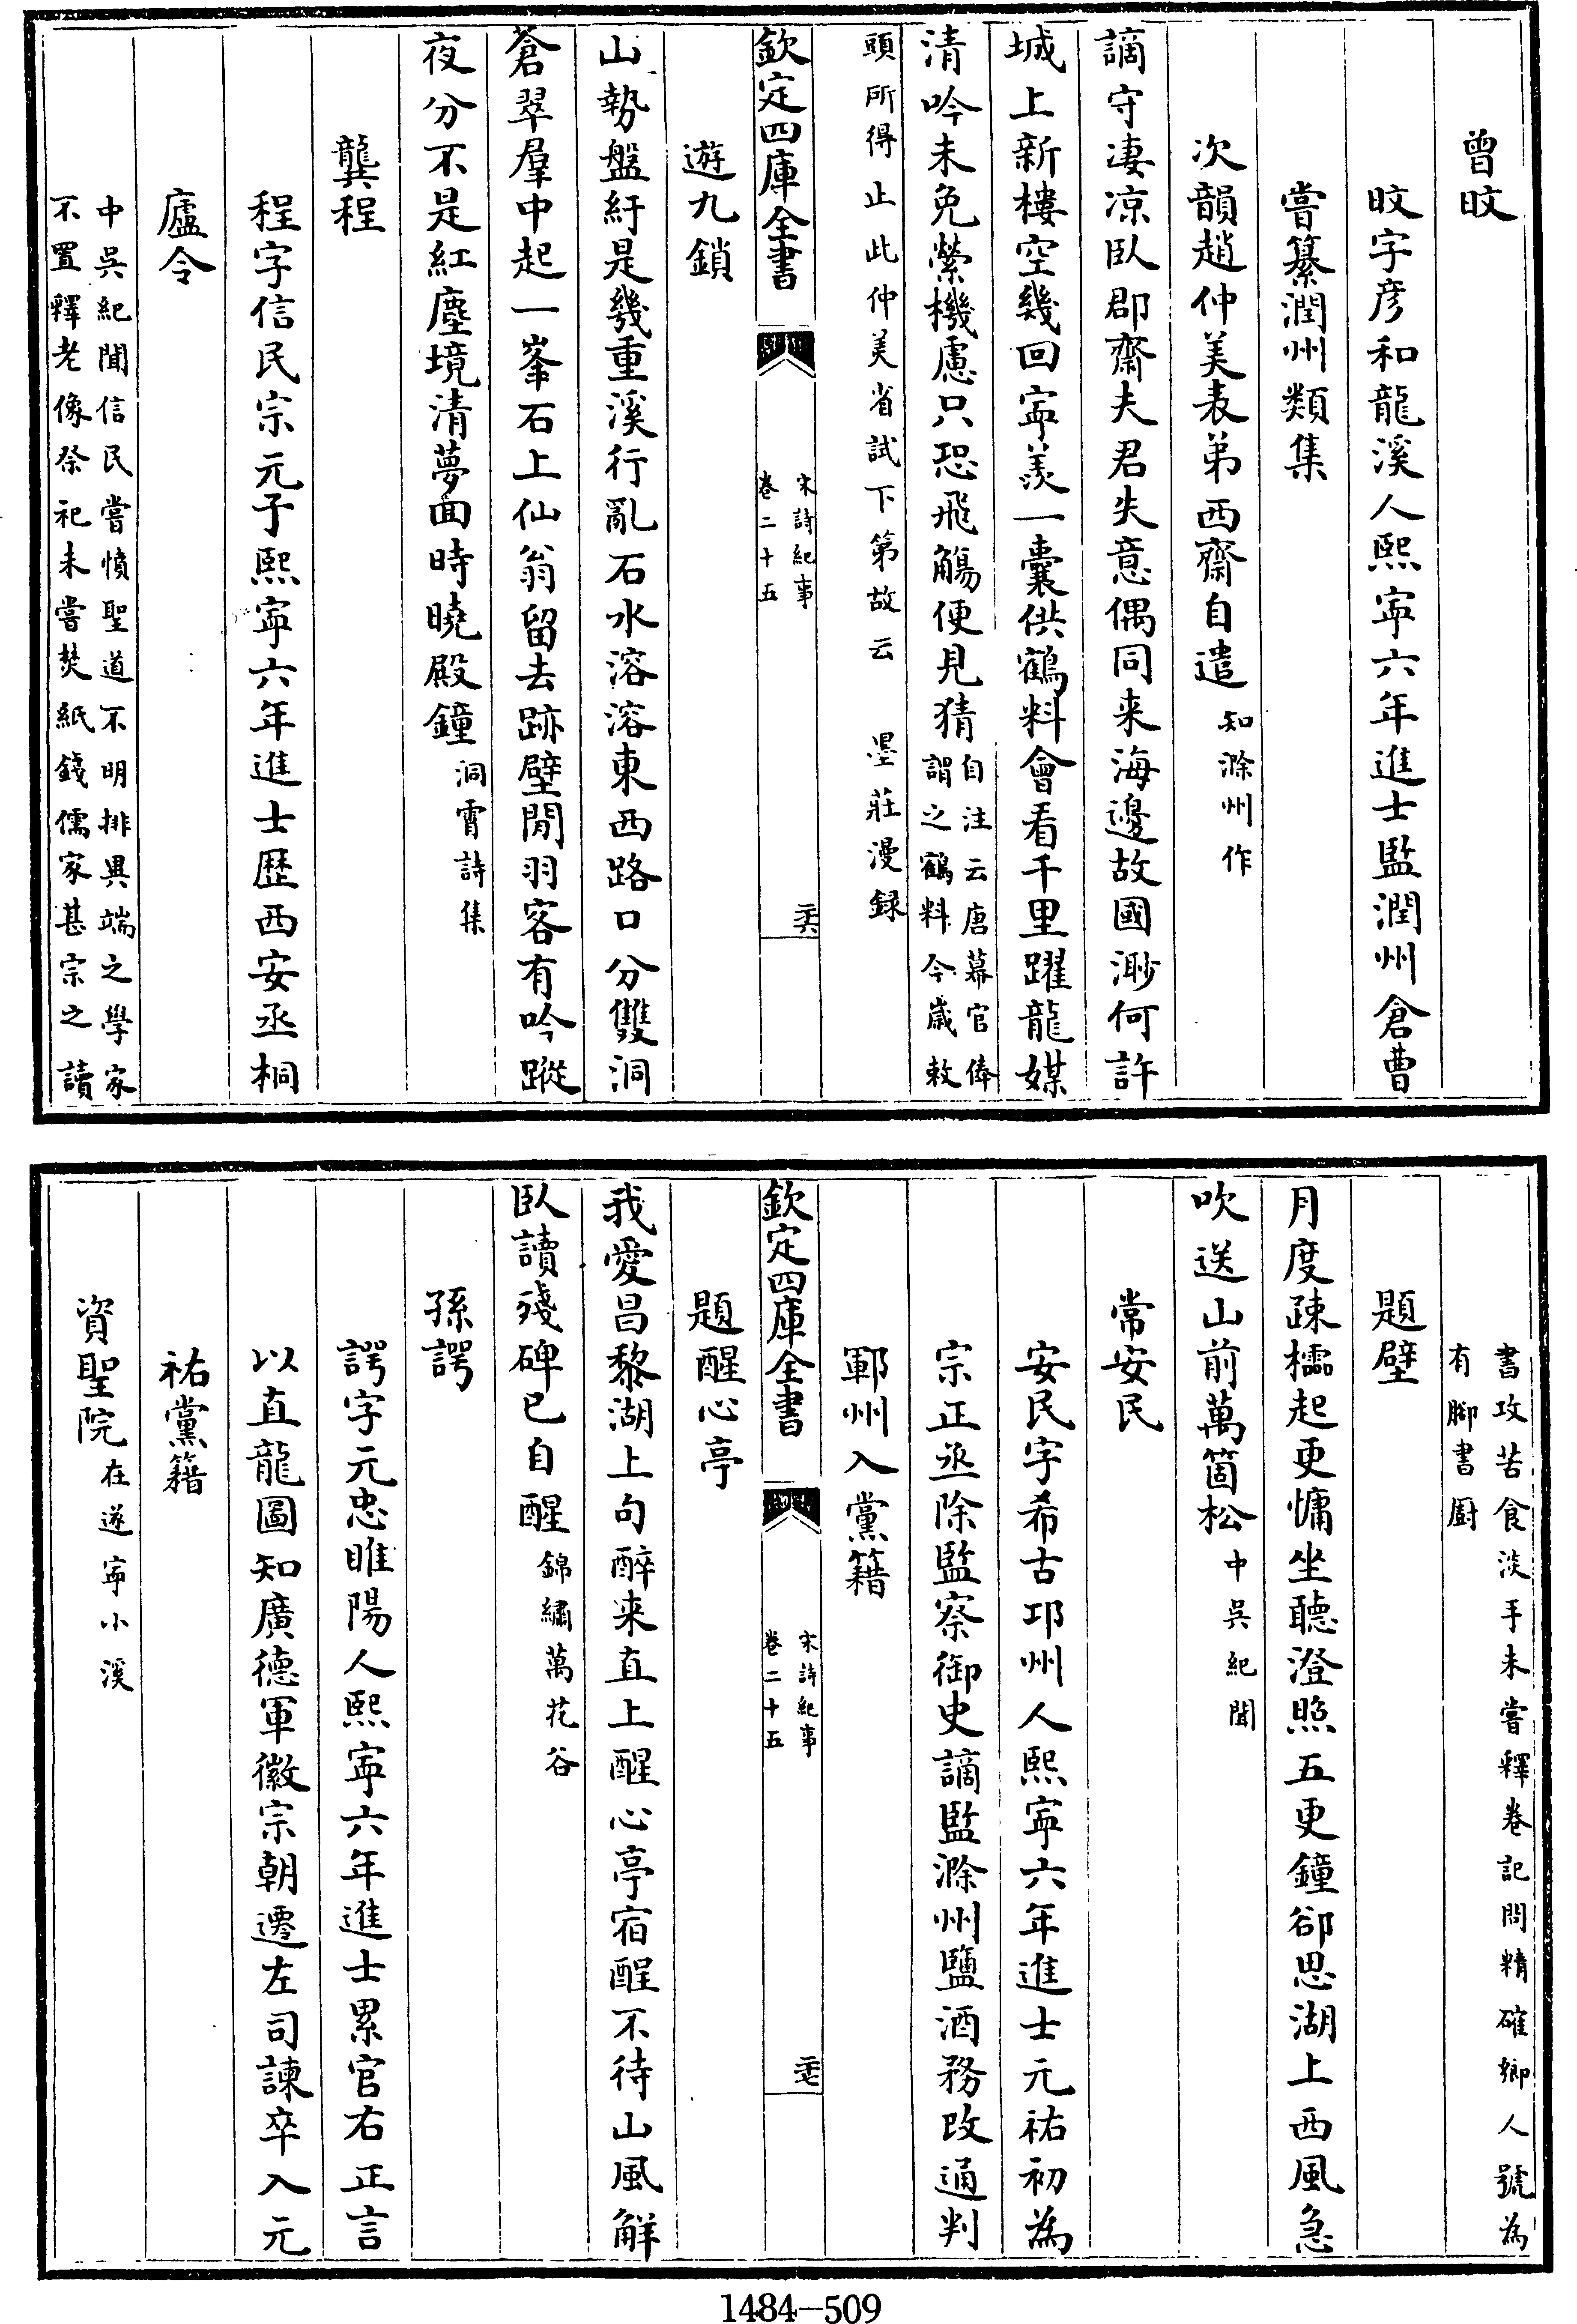 曾旼
旼字彦和龍溪人熙寜六年進士監潤州倉曹
嘗纂潤州類集
次韻趙仲美表弟西齋自遣知滁州作
謫守淒凉臥郡齋夫君失意偶同来海邊故國渺何許
城上新樓空幾回寜羡一囊供鶴料會看千里躍龍媒
清吟未免縈機慮只恐飛觴便見猜自注云唐幕官俸
謂之鶴料今歲敕
頭所得止此仲美省試下第故云 墨莊漫録
欽定四庫全書
宋詩紀事
卷二十五
遊九鎖
山勢盤紆是幾重溪行亂石水溶溶東西路口分雙洞
蒼翠羣中起一峯石上仙翁留去跡壁間羽客有吟蹤
夜分不是紅塵境清夢面時曉殿鐘洞霄詩集
龔程
程字信民宗元子熙寜六年進士歴西安丞桐
廬令
中吳紀聞信民嘗憤聖道不明排異端之學家
不置釋老像祭祀未嘗焚紙錢儒家甚宗之讀
書攻苦食淡手未嘗釋卷記問精確鄉人號為
有脚書厨
題壁
月度疎櫺起更慵坐聽澄照五更鐘郤思湖上西風急
吹送山前萬箇松中吳紀聞
常安民
安民字希古邛州人熙寜六年進士元祐初為
宗正丞除監察御史謫監滁州鹽酒務改通判
鄆州入黨籍
欽定四庫全書
宋詩紀事
卷二十五
題醒心亭
我愛昌黎湖上句醉来直上醒心亭宿酲不待山風解
臥讀殘碑已自醒錦繡萬花谷
孫諤
諤字元忠睢陽人熙寜六年進士累官右正言
以直龍圖知廣德軍徽宗朝遷左司諫卒入元
祐黨籍
資聖院在遂寜小溪
1484-509